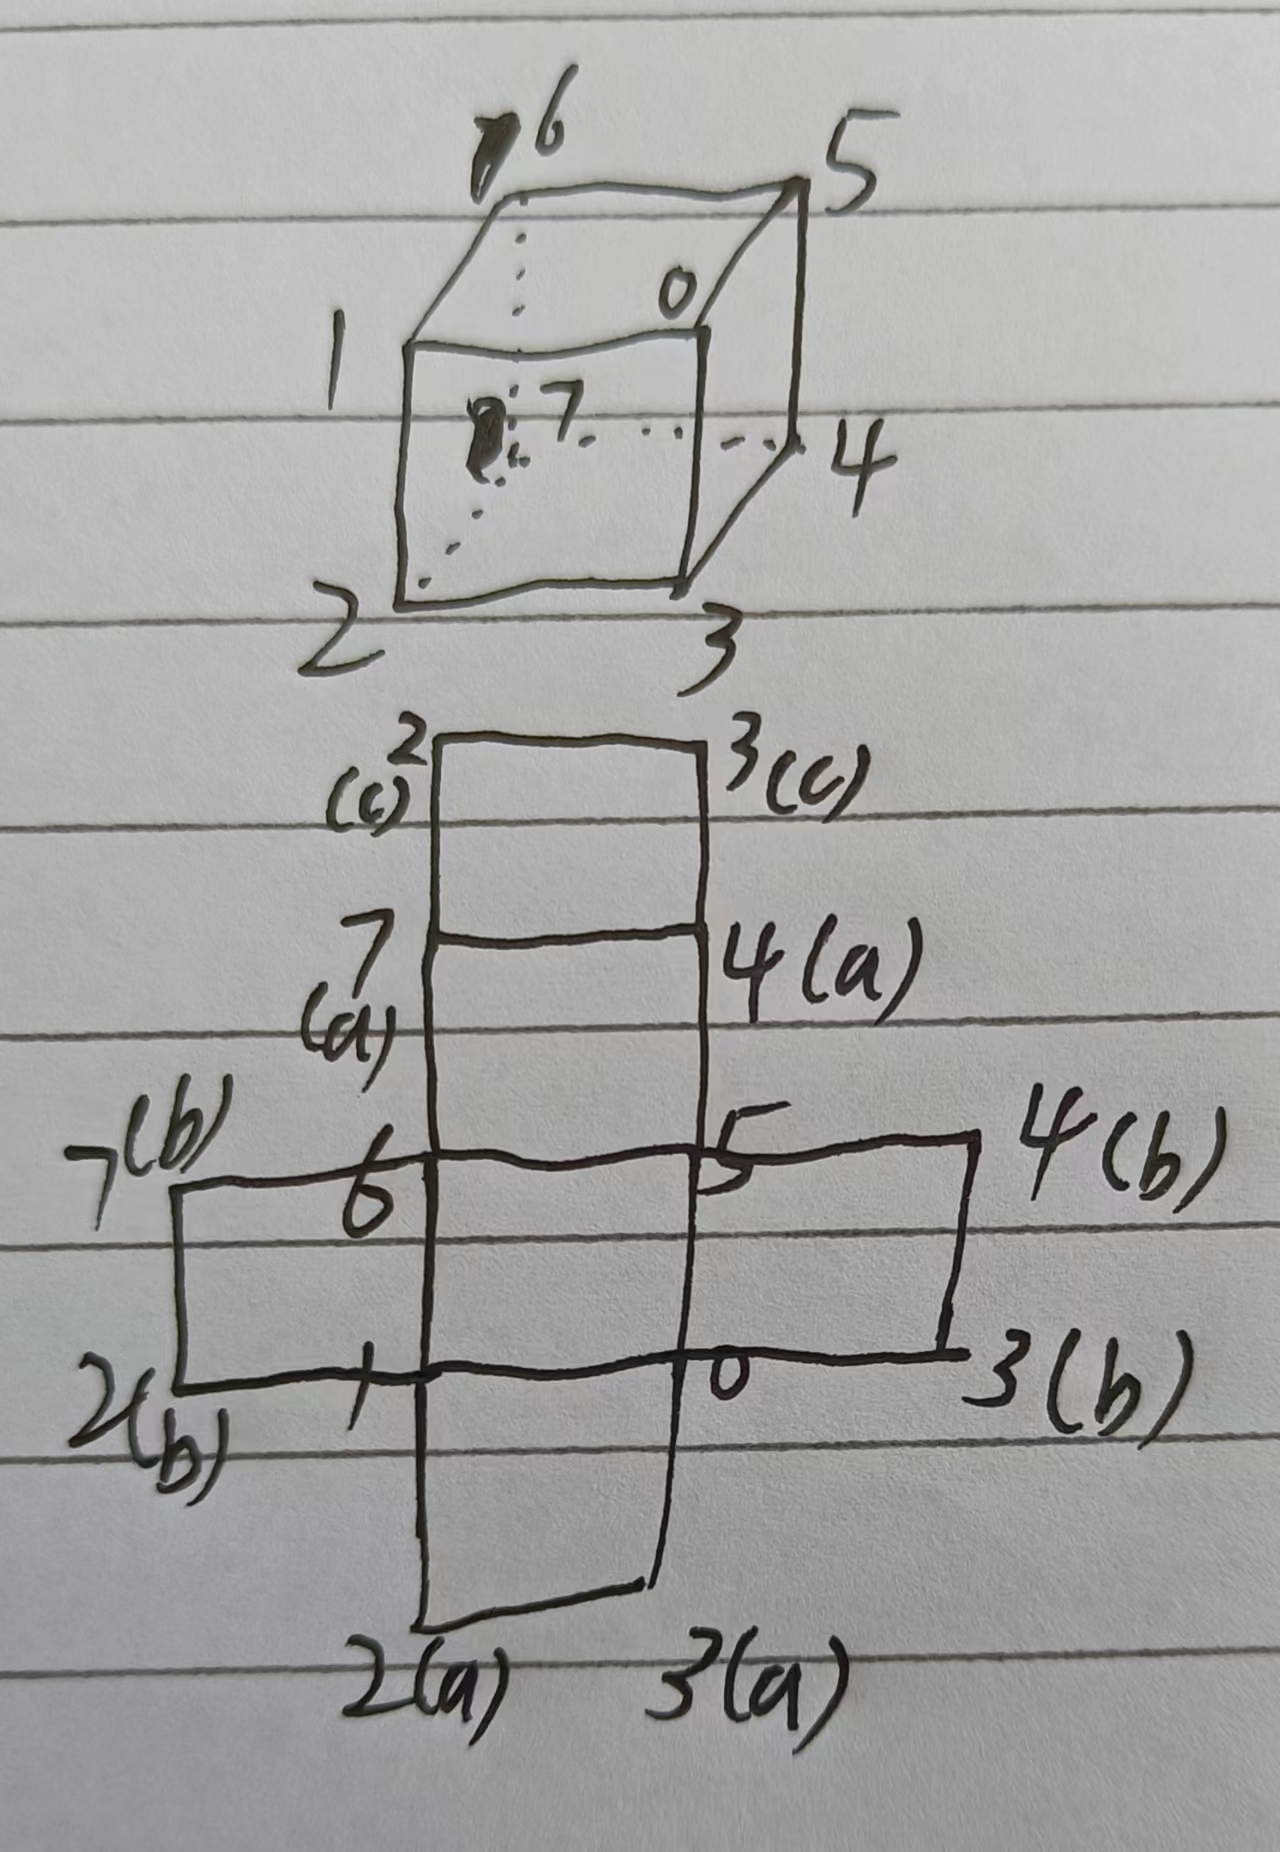 6 5
0
1
7
4
2 3
2 3
(c) (c)
7 4(a)
(a)
7(b) 6 5 4(b)
2(b) 1 0 3(b)
2(a) 3(a)